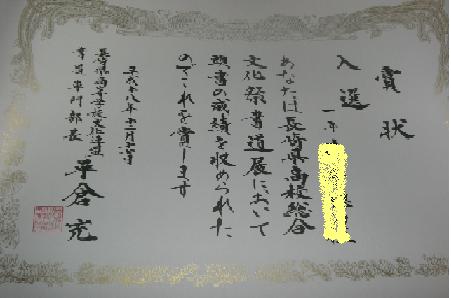 賞状
入選
一年
あなたは長崎県高校総合
文化祭書道展において
頭書の成績を収められた
のでこれを賞します
平成十八年十一月
長崎県高等学校文化連盟
書道専門部長 平倉充